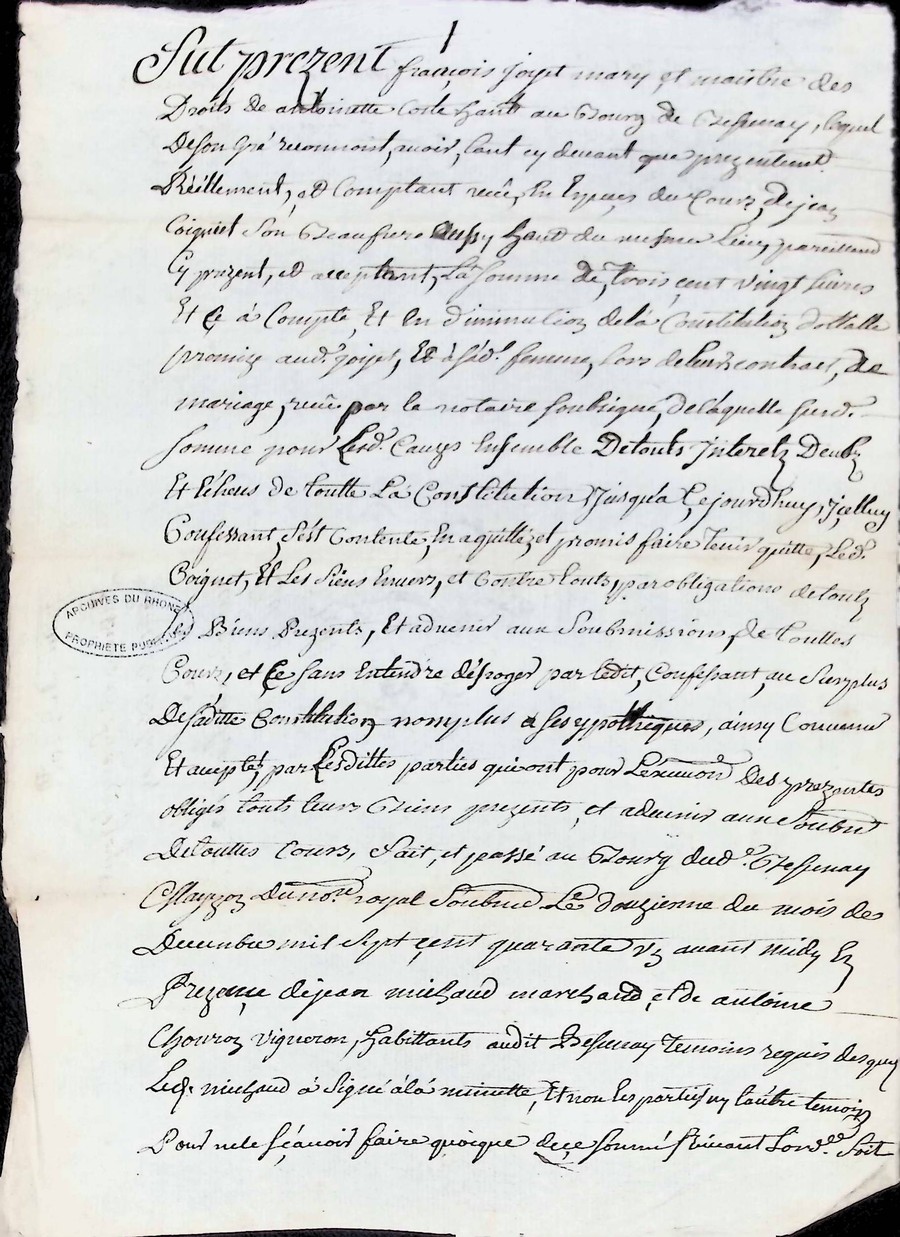 Fut prezent françois joyet mary et maistre des
Droits de antoinette Coste hant au Bourg de Bessenay, lequel
De son gré reconnoit, avoir, tant cy devant que prezentement
Réellement, et Comptant reçu, En Espèces du Cours, de jean
Coignet Son Beaufrere aussy hant du mesme Lieu, pareillement
Cy prezent, et acceptant, La Somme de, trois cent vingt Livres
Et Ce à Compte, Et En diminution de la Constitution dottalle
promize aud.t joyet, Et à sad.e femme, lors de leur contract, de
mariage, reçu par le notaire soubsigné, de laquelle susd.e
somme pour Lesd. Causes Ensemble De touts Interetz Deubz
Et Echeus de toutte La Constitution Jusqu'a Cejourdhuy, Icelluy
Confessant, s'est Contenté, En a quitté, et promis faire tenir quitte, Led.t
Coignet, Et Les Siens Envers, et Contre touts, par obligations de touts
Biens Prezents, Et advenir aux Soubmissions, de touttes
Cours, et Ce sans Entendre déroger par ledit, Confessant, au Surplus
De saditte Constitution nomplus a ses ypotheques, ainsy Convenu
Et accepté, par Lesdittes parties qui ont pour L'execution Des prezentes
obligés touts leurs Biens prezents, et advenir aux Soubm.
De touttes Cours, Fait, et passé au Bourg dud.t Bessenay
Mayzon Du no.re royal Soubné Le douzieme du mois de
Decembre mil Sept cent quarante un avant midy En
Prezance de jean michaud marchand, et de antoine
Chouroz vigneron, habittants audit Bessenay temoins requis desquels
Led. michaud à Signé à la minutte, Et non les parties ny l'autre temoin
Pour ne le sçavoir faire quoique de ce sommé suivant L'ord.ce Soit
ARCHIVES DU RHÔNE
PROPRIÉTÉ PUBLIQUE